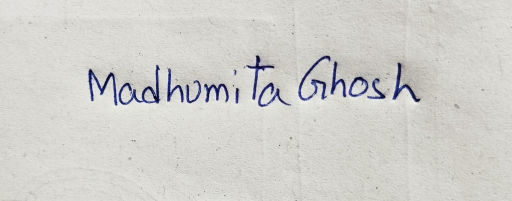 Madhumita Ghosh